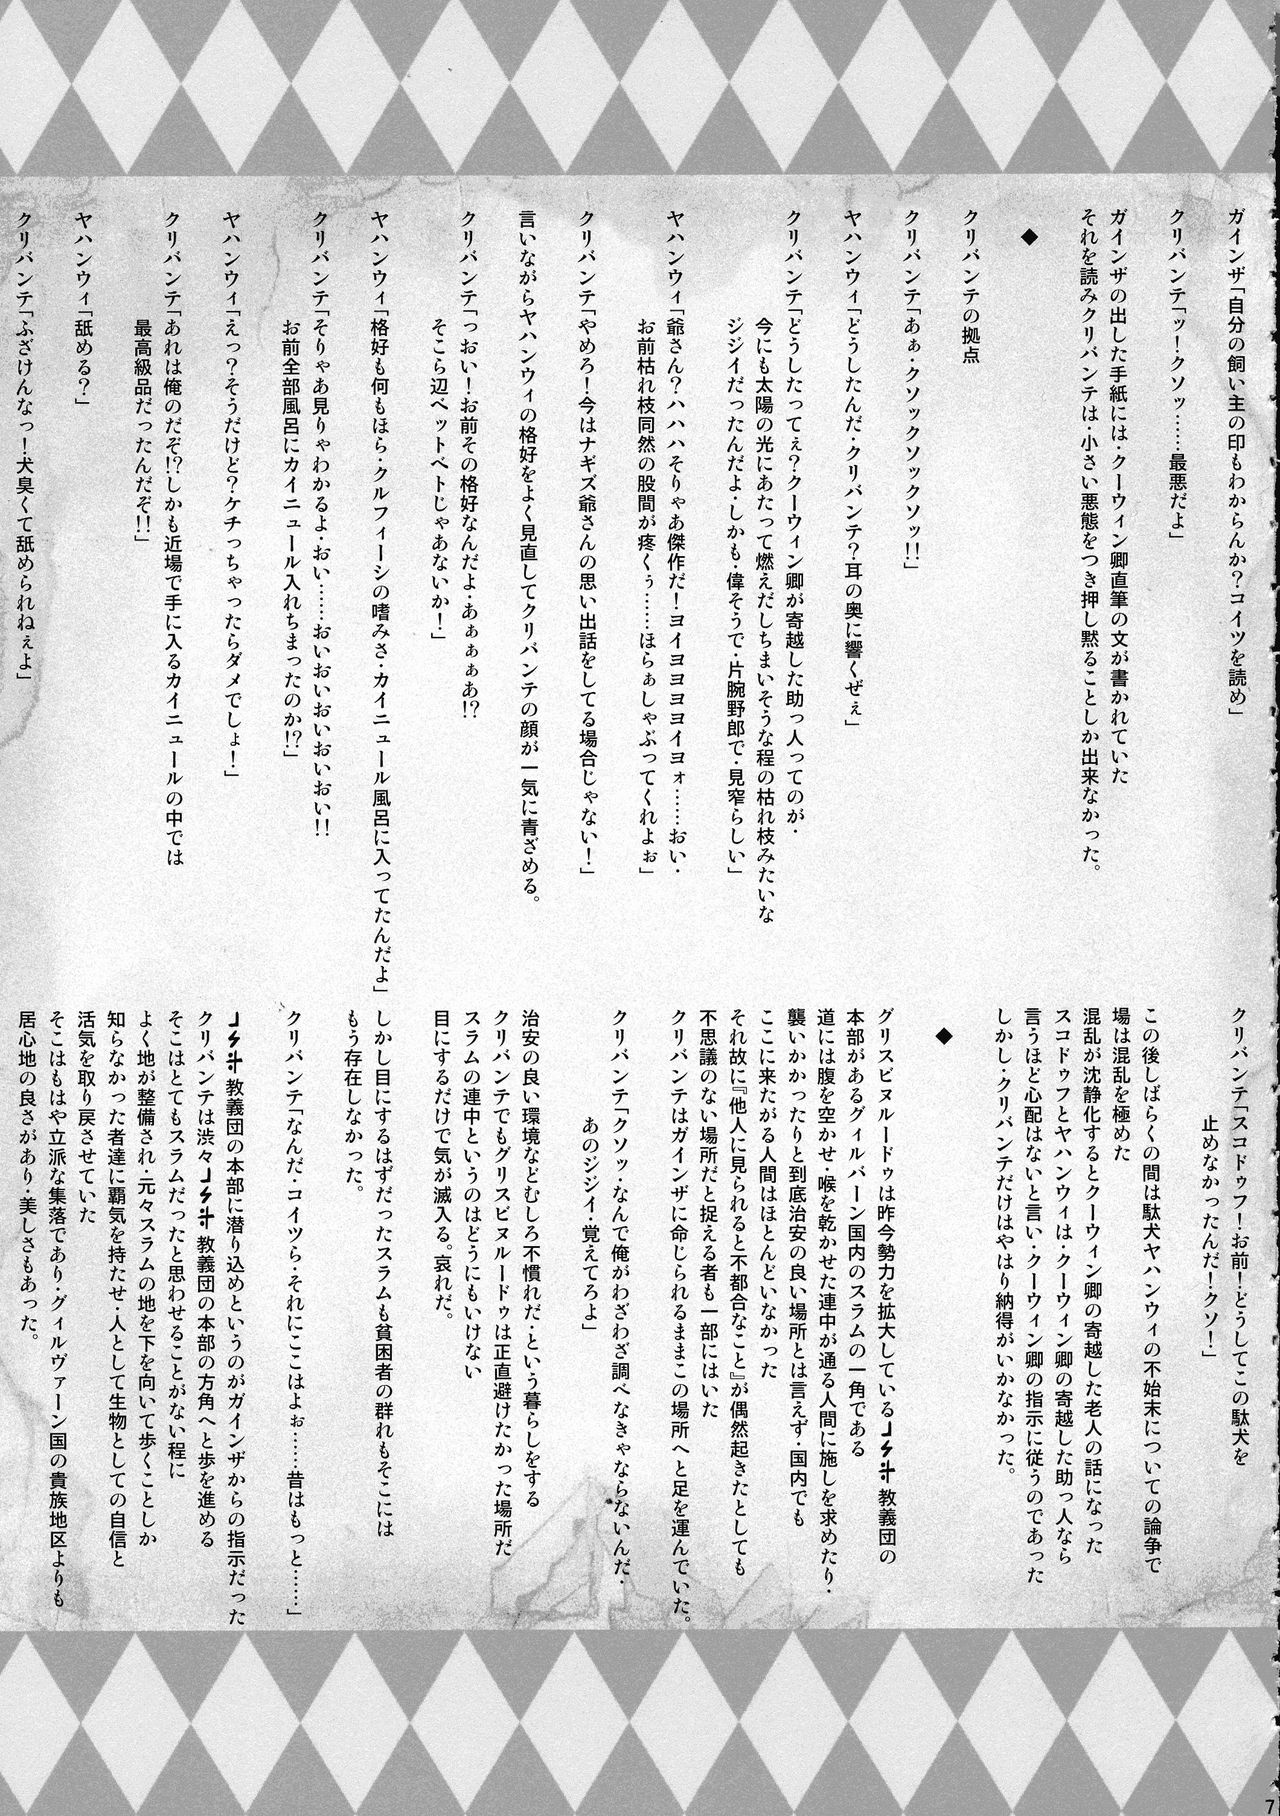 ガインザ「自分の飼い主の印もわからんか？コイツを読め」
クリバンテ「ッ！・クソッ……最悪だよ」
ガインザの出した手紙には・クーウィン卿直筆の文が書かれていた
それを読みクリバンテは・小さい悪態をつき押し黙ることしか出来なかった。
◆
クリバンテの拠点
クリバンテ「あぁ・クソックソックソッ!!」
ヤハンウィ「どうしたんだ・クリバンテ？耳の奥に響くぜぇ」
クリバンテ「どうしたってぇ？クーウィン卿が寄越した助っ人ってのが・
今にも太陽の光にあたって燃えだしちまいそうな程の枯れ枝みたいな
ジジイだったんだよ・しかも・偉そうで・片腕野郎で・見窄らしい」
ヤハンウィ「爺さん？ハハハそりゃあ傑作だ！ヨイヨヨヨヨイヨォ……おい・
お前枯れ枝同然の股間が疼くぅ……ほらぁしゃぶってくれよぉ」
クリバンテ「やめろ！今はナギズ爺さんの思い出話をしてる場合じゃない！」
言いながらヤハンウィの格好をよく見直してクリバンテの顔が一気に青ざめる。
クリバンテ「っおい！お前その格好なんだよ・あぁぁぁあ!?
そこら辺ベットベトじゃあないか！」
ヤハンウィ「格好も何もほら・クルフィーシの嗜みさ・カイニュール風呂に入ってたんだよ」
クリバンテ「そりゃあ見りゃわかるよ・おい……おいおいおいおいおい!!
お前全部風呂にカイニュール入れちまったのか!?」
ヤハンウィ「えっ？そうだけど？ケチっちゃったらダメでしょ！」
クリバンテ「あれは俺のだぞ!?しかも近場で手に入るカイニュールの中では
最高級品だったんだぞ!!」
ヤハンウィ「舐める？」
クリバンテ「ふざけんなっ！犬臭くて舐められねぇよ」
クリバンテ「スコドゥフ！お前！どうしてこの駄犬を
止めなかったんだ！クソ！」
この後しばらくの間は駄犬ヤハンウィの不始末についての論争で
場は混乱を極めた
混乱が沈静化するとクーウィン卿の寄越した老人の話になった
スコドゥフとヤハンウィは・クーウィン卿の寄越した助っ人なら
言うほど心配はないと言い・クーウィン卿の指示に従うのであった
しかし・クリバンテだけはやはり納得がいかなかった。
◆
グリスビヌルードゥは昨今勢力を拡大している教義団の
本部があるグィルバーン国内のスラムの一角である
道には腹を空かせ・喉を乾かせた連中が通る人間に施しを求めたり・
襲いかかったりと到底治安の良い場所とは言えず・国内でも
ここに来たがる人間はほとんどいなかった
それ故に『他人に見られると不都合なこと』が偶然起きたとしても
不思議のない場所だと捉える者も一部にはいた
クリバンテはガインザに命じられるままこの場所へと足を運んでいた。
クリバンテ「クソッ・なんで俺がわざわざ調べなきゃならないんだ・
あのジジイ・覚えてろよ」
治安の良い環境などむしろ不慣れだ・という暮らしをする
クリバンテでもグリスビヌルードゥは正直避けたかった場所だ
スラムの連中というのはどうにもいけない
目にするだけで気が滅入る。哀れだ。
しかし目にするはずだったスラムも貧困者の群れもそこには
もう存在しなかった。
クリバンテ「なんだ・コイツら・それにここはよぉ……昔はもっと……」
教義団の本部に潜り込めというのがガインザからの指示だった
クリバンテは渋々教義団の本部の方角へと歩を進める
そこはとてもスラムだったと思わせることがない程に
よく地が整備され・元々スラムの地を下を向いて歩くことしか
知らなかった者達に覇気を持たせ・人として生物としての自信と
活気を取り戻させていた
そこはもはや立派な集落であり・グィルヴァーン国の貴族地区よりも
居心地の良さがあり・美しさもあった。
7